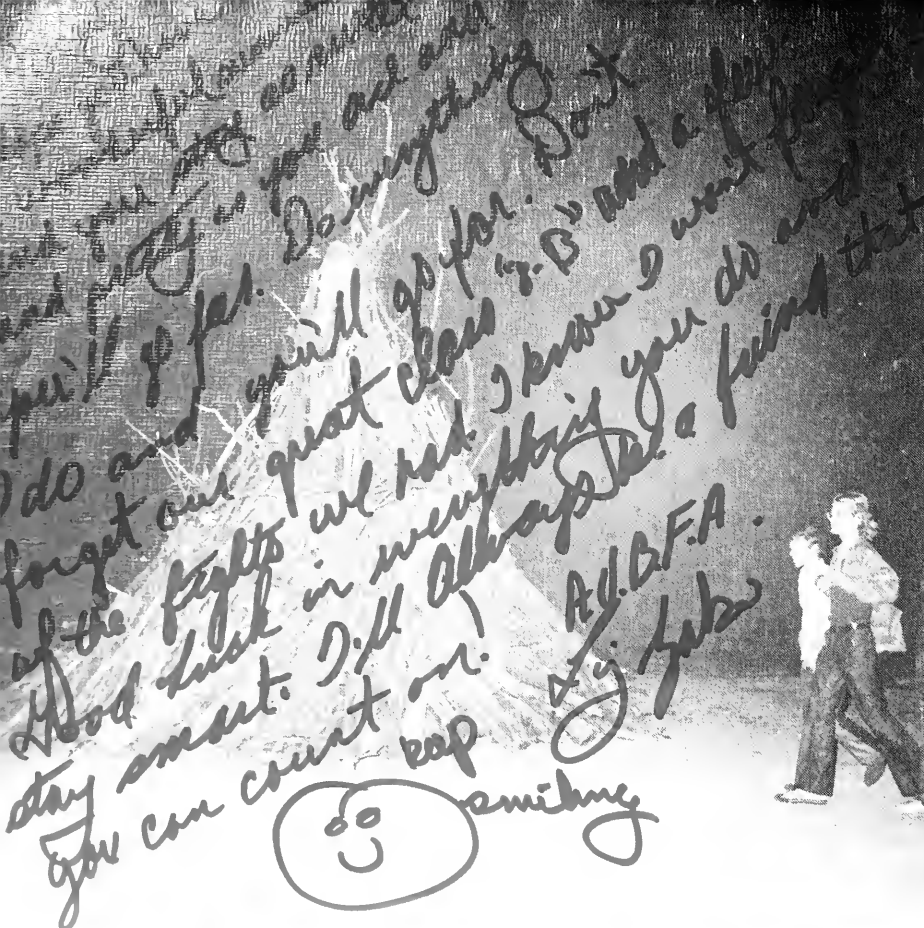 wonderful
and you stay
and pretty as you are and
you'll go far. Do everything
I do and you'll go far. Don't
forget our great class "8-B" and a few
of the fights we had. I know I won't forget
Good Luck in everything you do and
stay smart. I'll Always be a friend that
you can count on!
A.Y.B.F.A.
Liz
keep
smiling